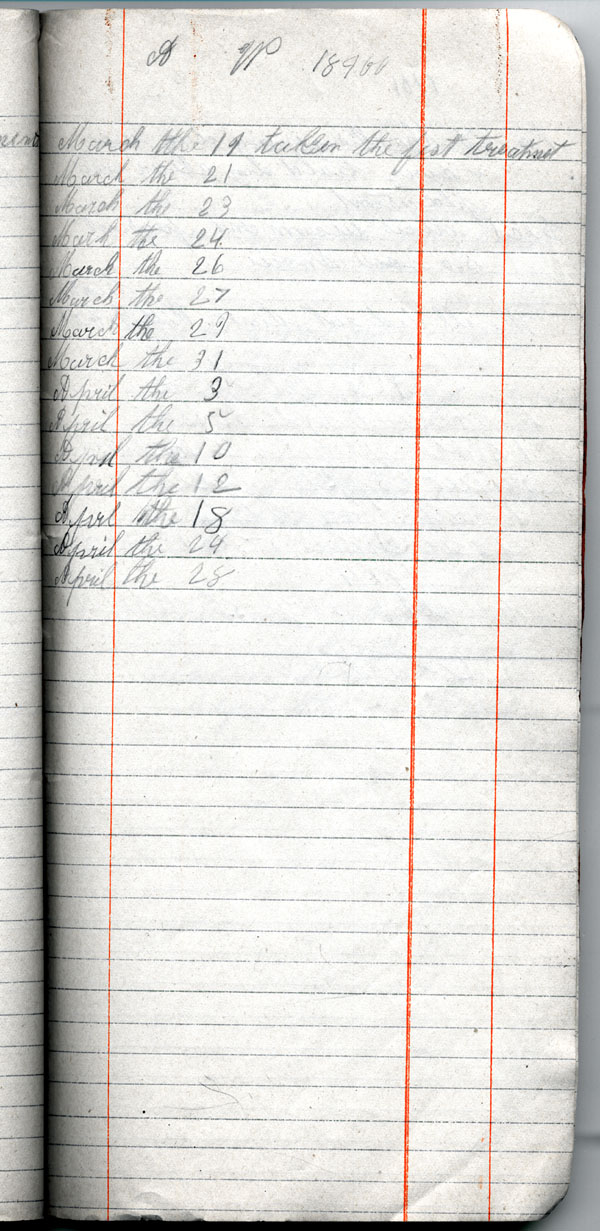 A W 18900
March the 19 taken the fist treatmet
March the 21
March the 23
Marh the 24
March the 26
March the 27
March the 29
March the 31
April the 3
April the 5
April the 10
April the 12
Aprl the 18
April the 24
April the 28